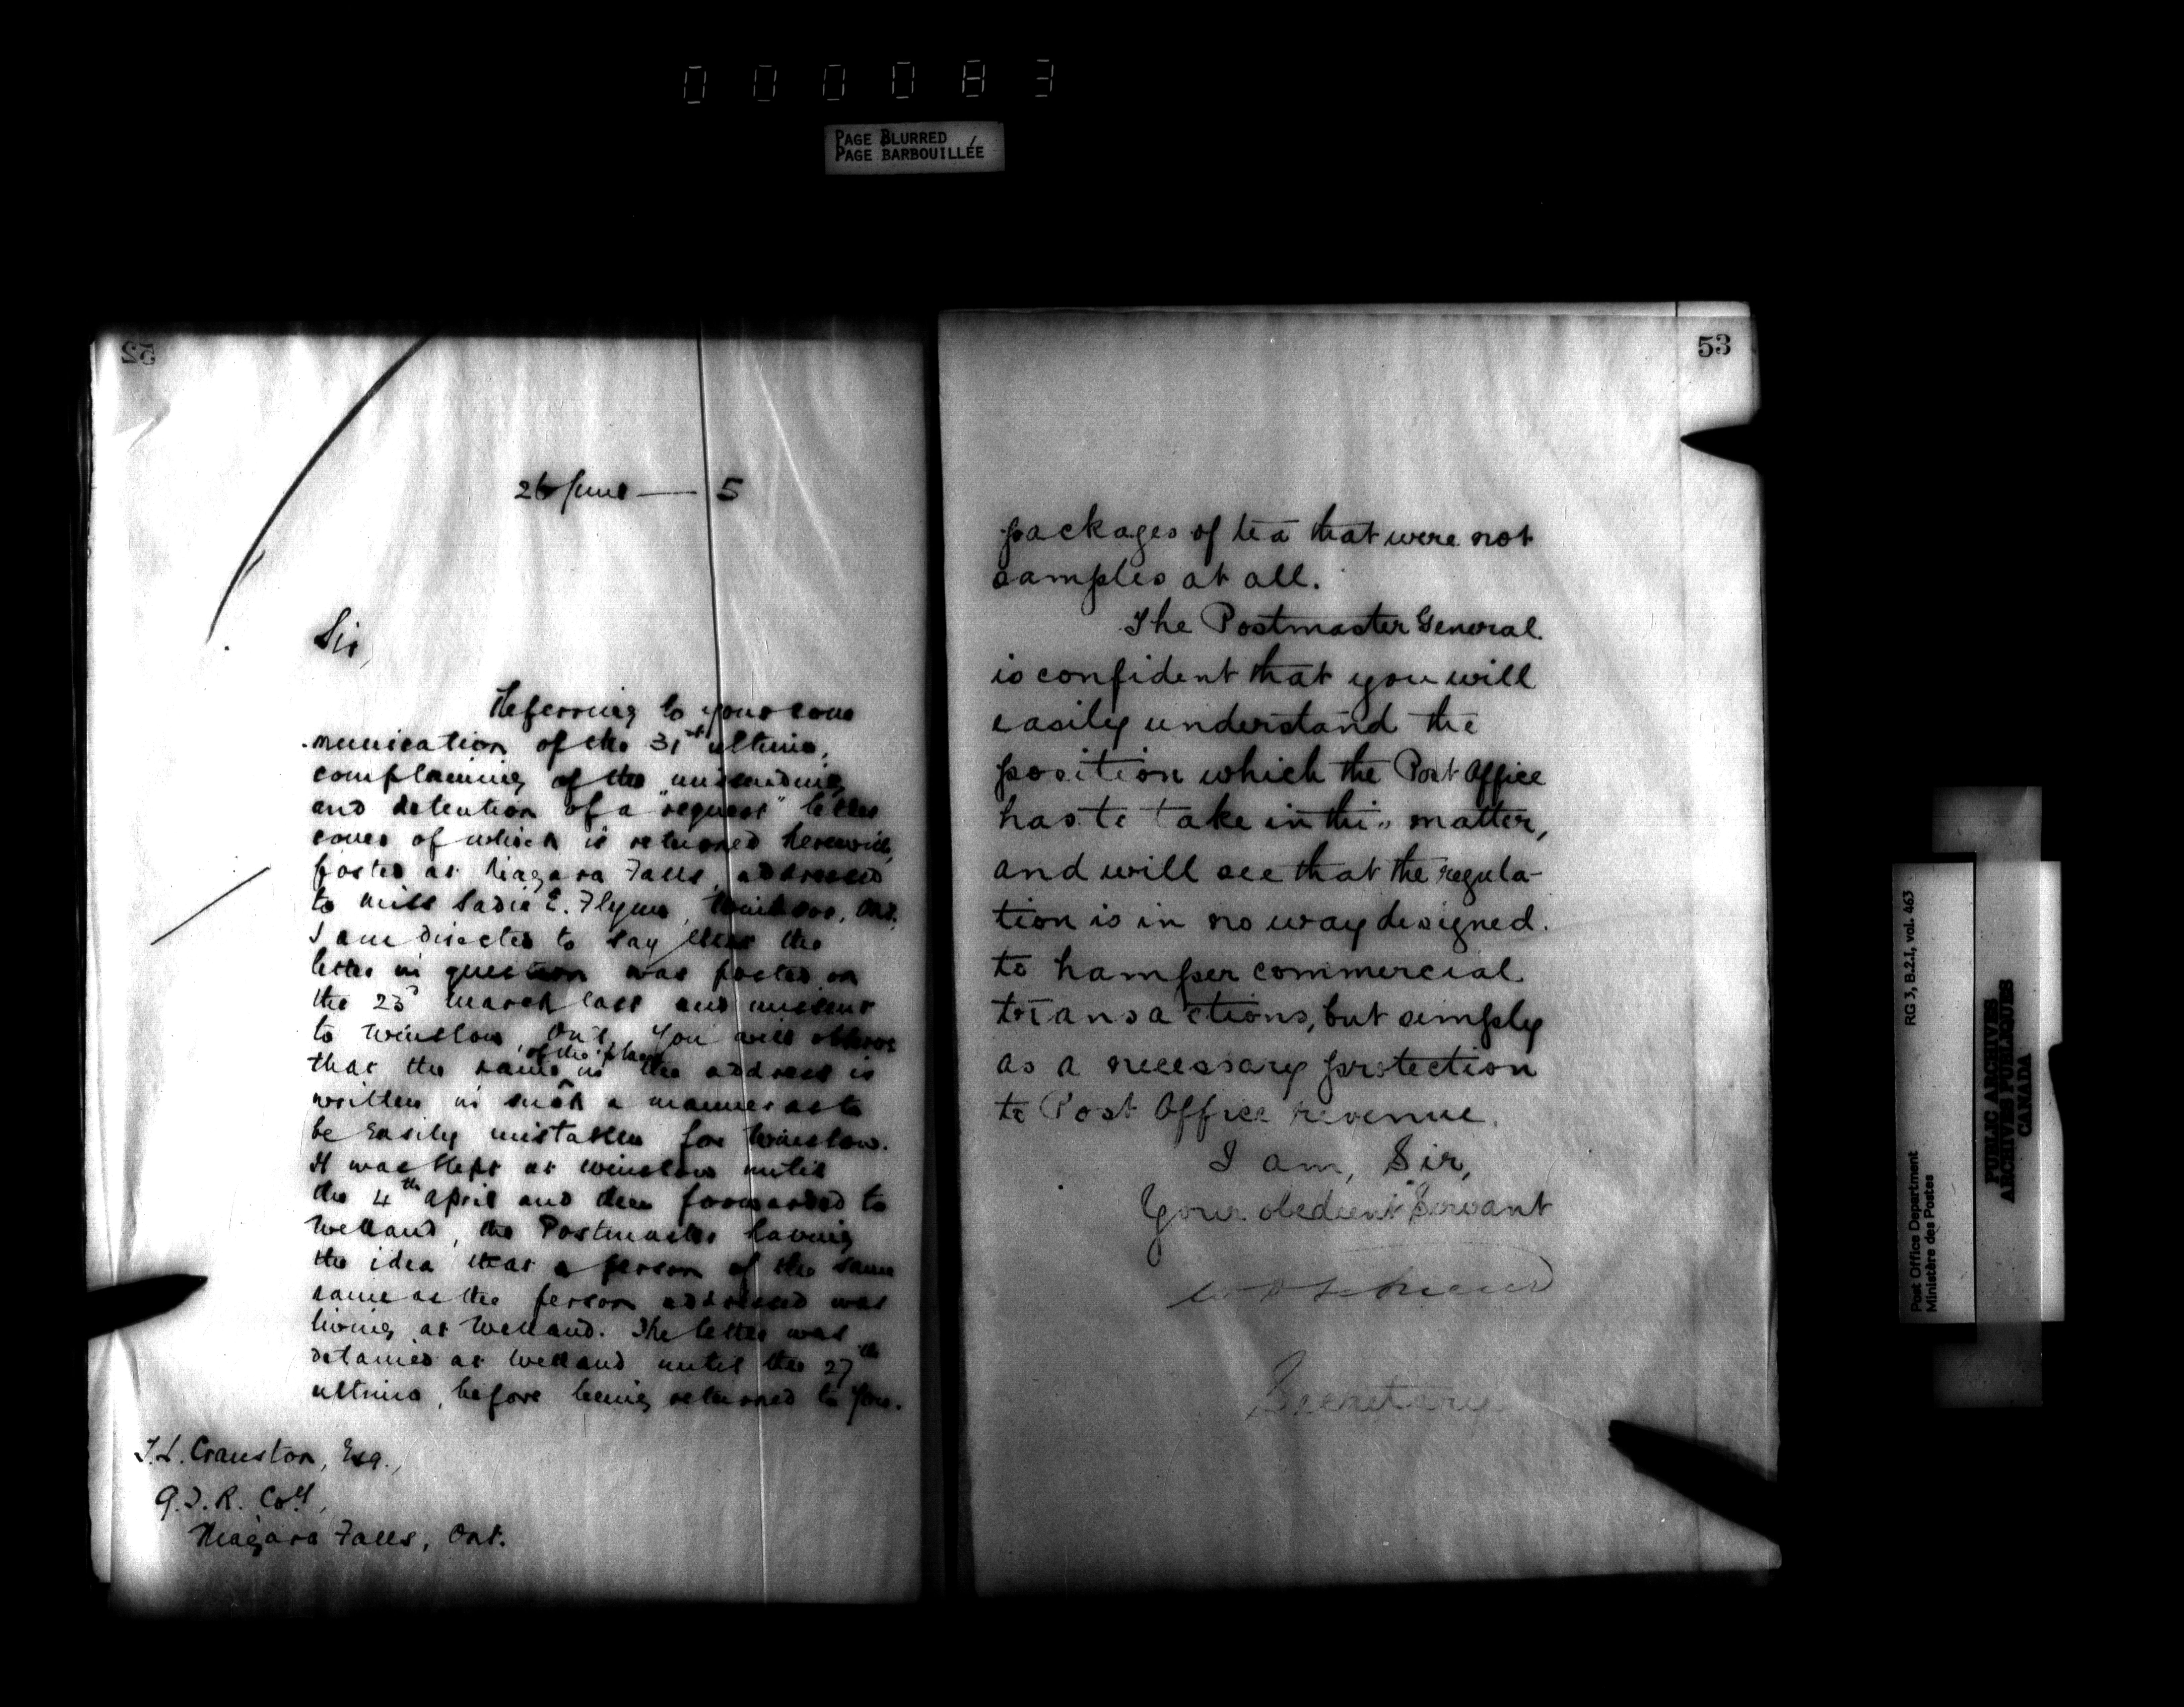 000083
PAGE BLURRED
PAGE BARBOUILLÉE
52
26 June — 5
Sir,
Referring to your com
munication of the 31st ultimo,
complaining of the missending
and detention of a "request" letter
cover of which is returned herewith,
posted at Niagara Falls, addressed
to Miss Sadie E. Flynn, Windsor, Ont.
I am directed to say that the
letter in question was posted on
the 23d March last and missent
to Winslow, Ont. You will observe
of the place
that the name in the address is
written in such a manner as to
be easily mistaken for Winslow.
It was kept at Winslow until
the 4th April and then forwarded to
Welland, the Postmaster having
the idea that a person of the same
name as the person addressed was
living at Welland. The letter was
detained at Welland until the 27th
ultimo, before being returned to you.
T.L. Cranston, Esq.,
G.T.R. Coy,
Niagara Falls, Ont.
53
packages of tea that were not
samples at all.
The Postmaster General
is confident that you will
easily understand the
position which the Post Office
has to take in this matter,
and will see that the regula-
tion is in no way designed
to hamper commercial
transactions, but simply
as a necessary protection
to Post Office revenue.
I am, Sir,
Your obedient Servant
Secretary
RG 3, B.2.1, vol. 463
Post Office Department
Ministère des Postes
PUBLIC ARCHIVES
ARCHIVES PUBLIQUES
CANADA